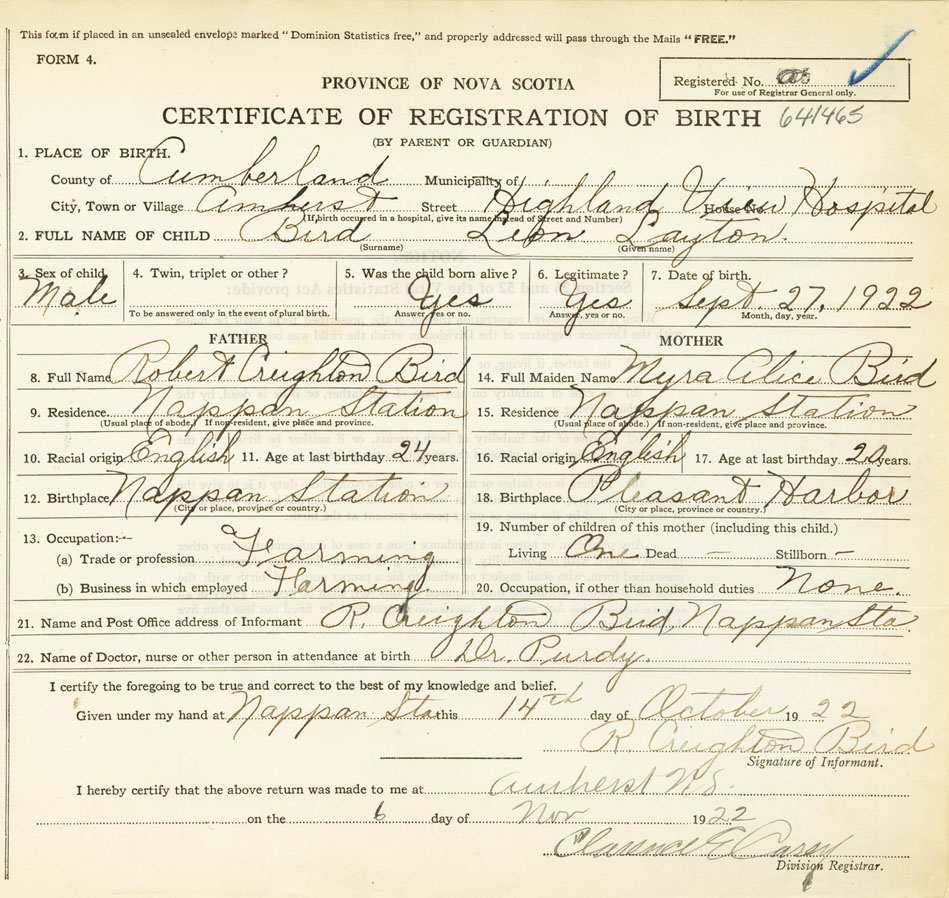 This form if placed in an unsealed envelope marked "Dominion Statistics free," and properly addressed will pass through the Mails "FREE."
FORM 4.
PROVINCE OF NOVA SCOTIA
Registered No.
For use of Registrar General only.
CERTIFICATE OF REGISTRATION OF BIRTH 641465
(BY PARENT OR GUARDIAN)
1. PLACE OF BIRTH.
County of Cumberland Municipality of
City, Town or Village Amherst Street Highland View House No. Hospital
(If birth occurred in a hospital, give its name instead of Street and Number)
2. FULL NAME OF CHILD Bird Leon Layton.
(Surname) (Given name)
3. Sex of child Male
4. Twin, triplet or other?
To be answered only in the event of plural birth.
5. Was the child born alive? Yes
Answer, yes or no.
6. Legitimate? Yes
Answer, yes or no.
7. Date of birth. Sept. 27, 1922
Month, day, year.
FATHER
8. Full Name Robert Creighton Bird
9. Residence. Nappan Station
(Usual place of abode.) If non-resident, give place and province.
10. Racial origin English 11. Age at last birthday 24 years.
12. Birthplace Nappan Station
(City or place, province or country.)
13. Occupation:—
(a) Trade or profession Farming
(b) Business in which employed Farming
MOTHER
14. Full Maiden Name Myra Alice Bird
15. Residence Nappan Station
(Usual place of abode.) If non-resident, give place and province.
16. Racial origin English 17. Age at last birthday years.
18. Birthplace Pleasant Harbor
(City or place, province or country.)
19. Number of children of this mother (including this child.)
Living One Dead — Stillborn —
20. Occupation, if other than household duties None.
21. Name and Post Office address of Informant R. Creighton Bird, Nappan Sta.
22. Name of Doctor, nurse or other person in attendance at birth Dr. Purdy.
I certify the foregoing to be true and correct to the best of my knowledge and belief.
Given under my hand at Nappan Sta. this 14th day of October 1922
R. Creighton Bird
Signature of Informant.
I hereby certify that the above return was made to me at Amherst N.S.
on the 6 day of Nov 1922
Clarence E Casey
Division Registrar.